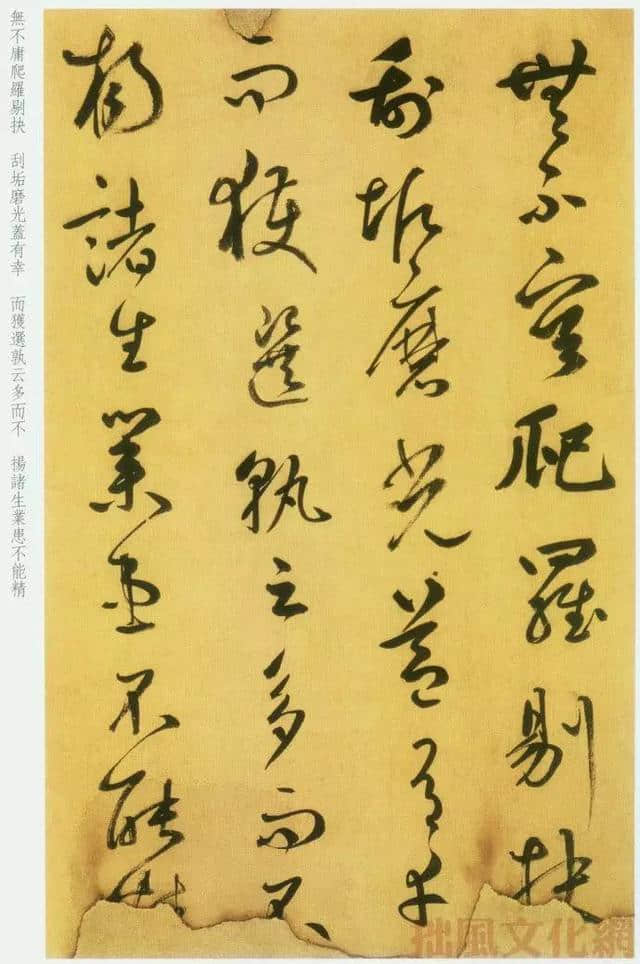 無不庸爬羅剔抉
刮垢磨光蓋有幸
而獲選孰云多而不
揚諸生業患不能精
無不庸爬羅剔抉 刮垢磨光蓋有幸 而獲選孰云多而不 揚諸生業患不能精
拙風文化網